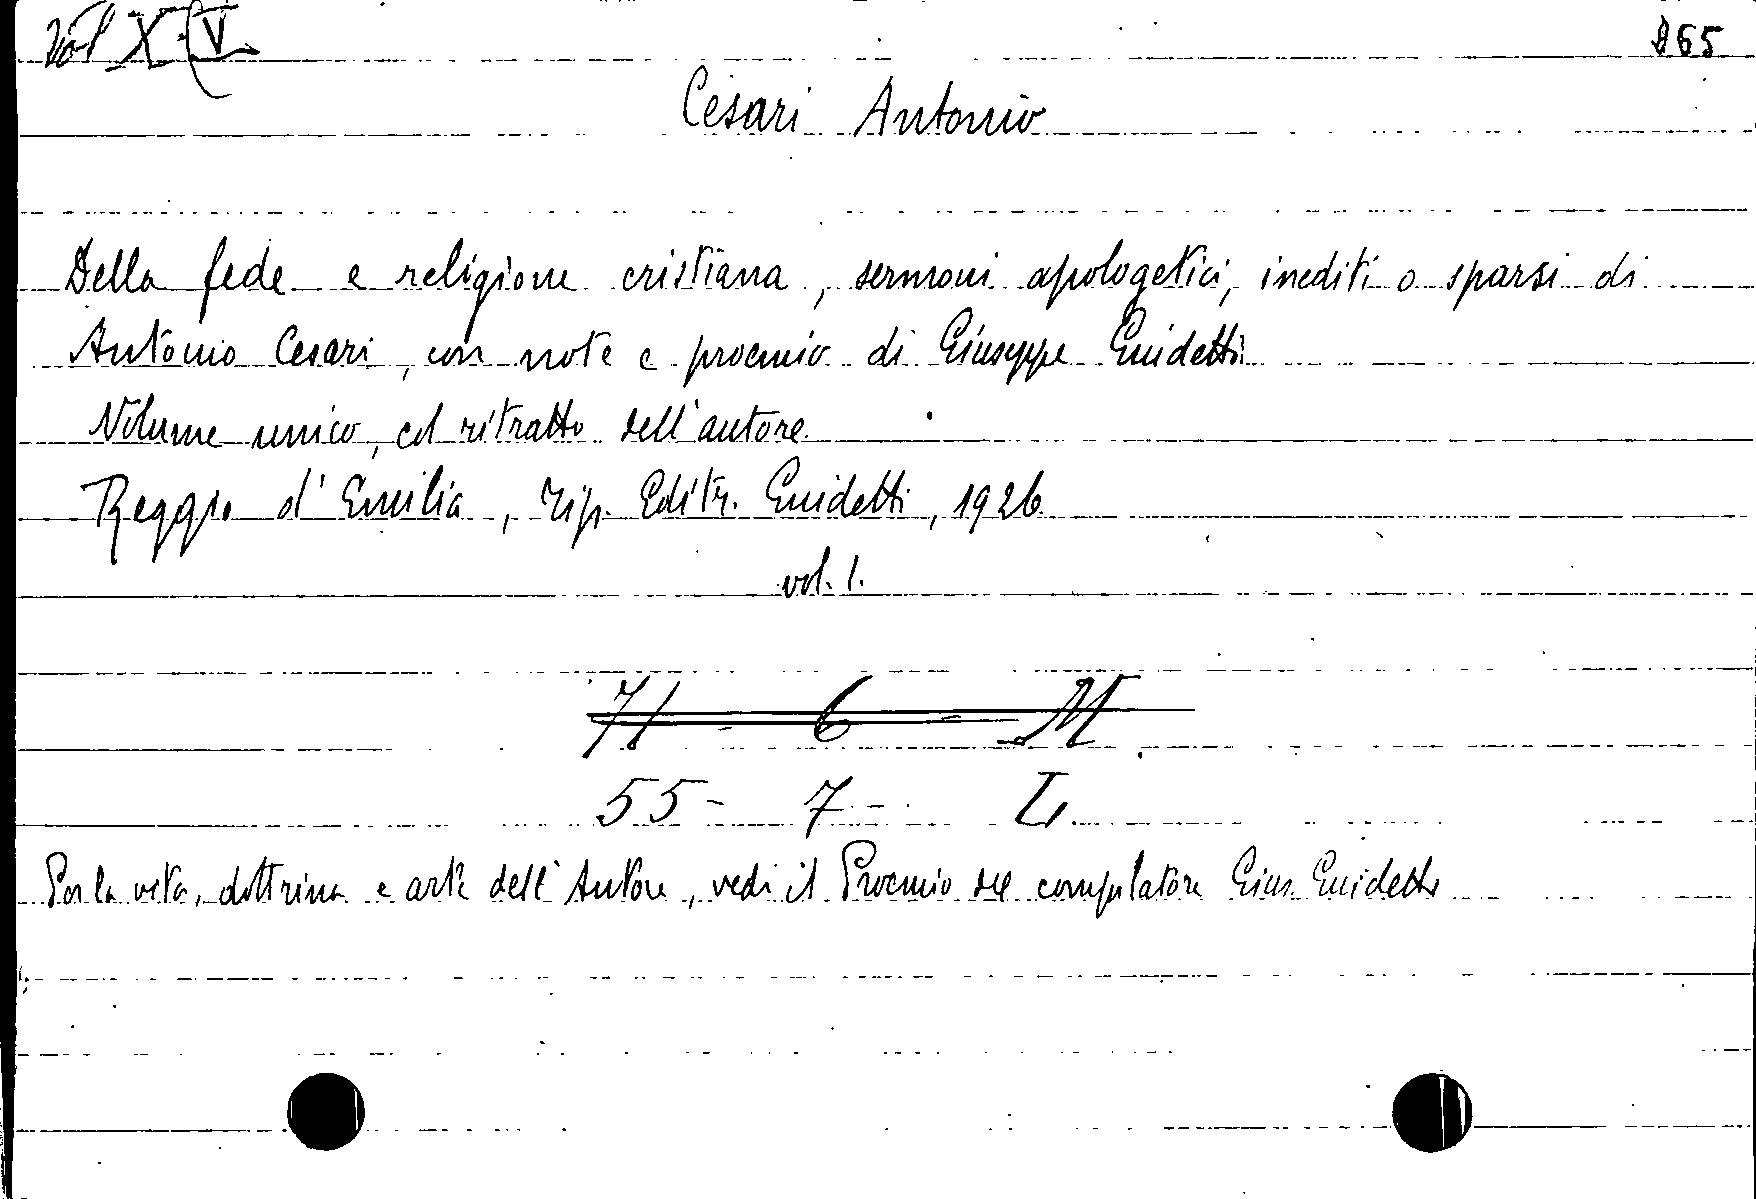 Vol X V
D65
Cesari Antonio
Della fede e religione cristiana, sermoni apologetici, inediti o sparsi di
Antonio Cesari, con note e proemio di Giuseppe Guidetti
Volume unico, col ritratto dell'autore
Reggio d'Emilia, Tip. Editr. Guidetti, 1926
vol. 1.
71 - 6 - M
55 - 7 - L
Per la vita, dottrina e arte dell'Autore, vedi il Proemio del compilatore Gius. Guidetti